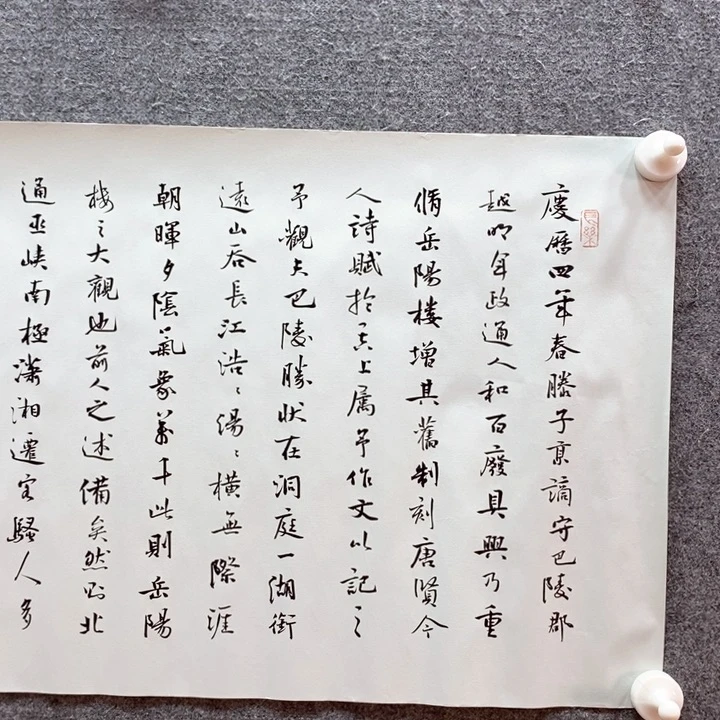 慶歷四年春滕子京謫守巴陵郡
越明年政通人和百廢具興乃重
脩岳陽楼增其舊制刻唐賢今
人詩賦於其上属予作文以記之
予觀夫巴陵勝狀在洞庭一湖銜
遠山吞長江浩〻湯〻橫無際涯
朝暉夕陰氣象萬千此則岳陽
楼之大觀也前人之述備矣然則北
通巫峽南極瀟湘遷客騷人多